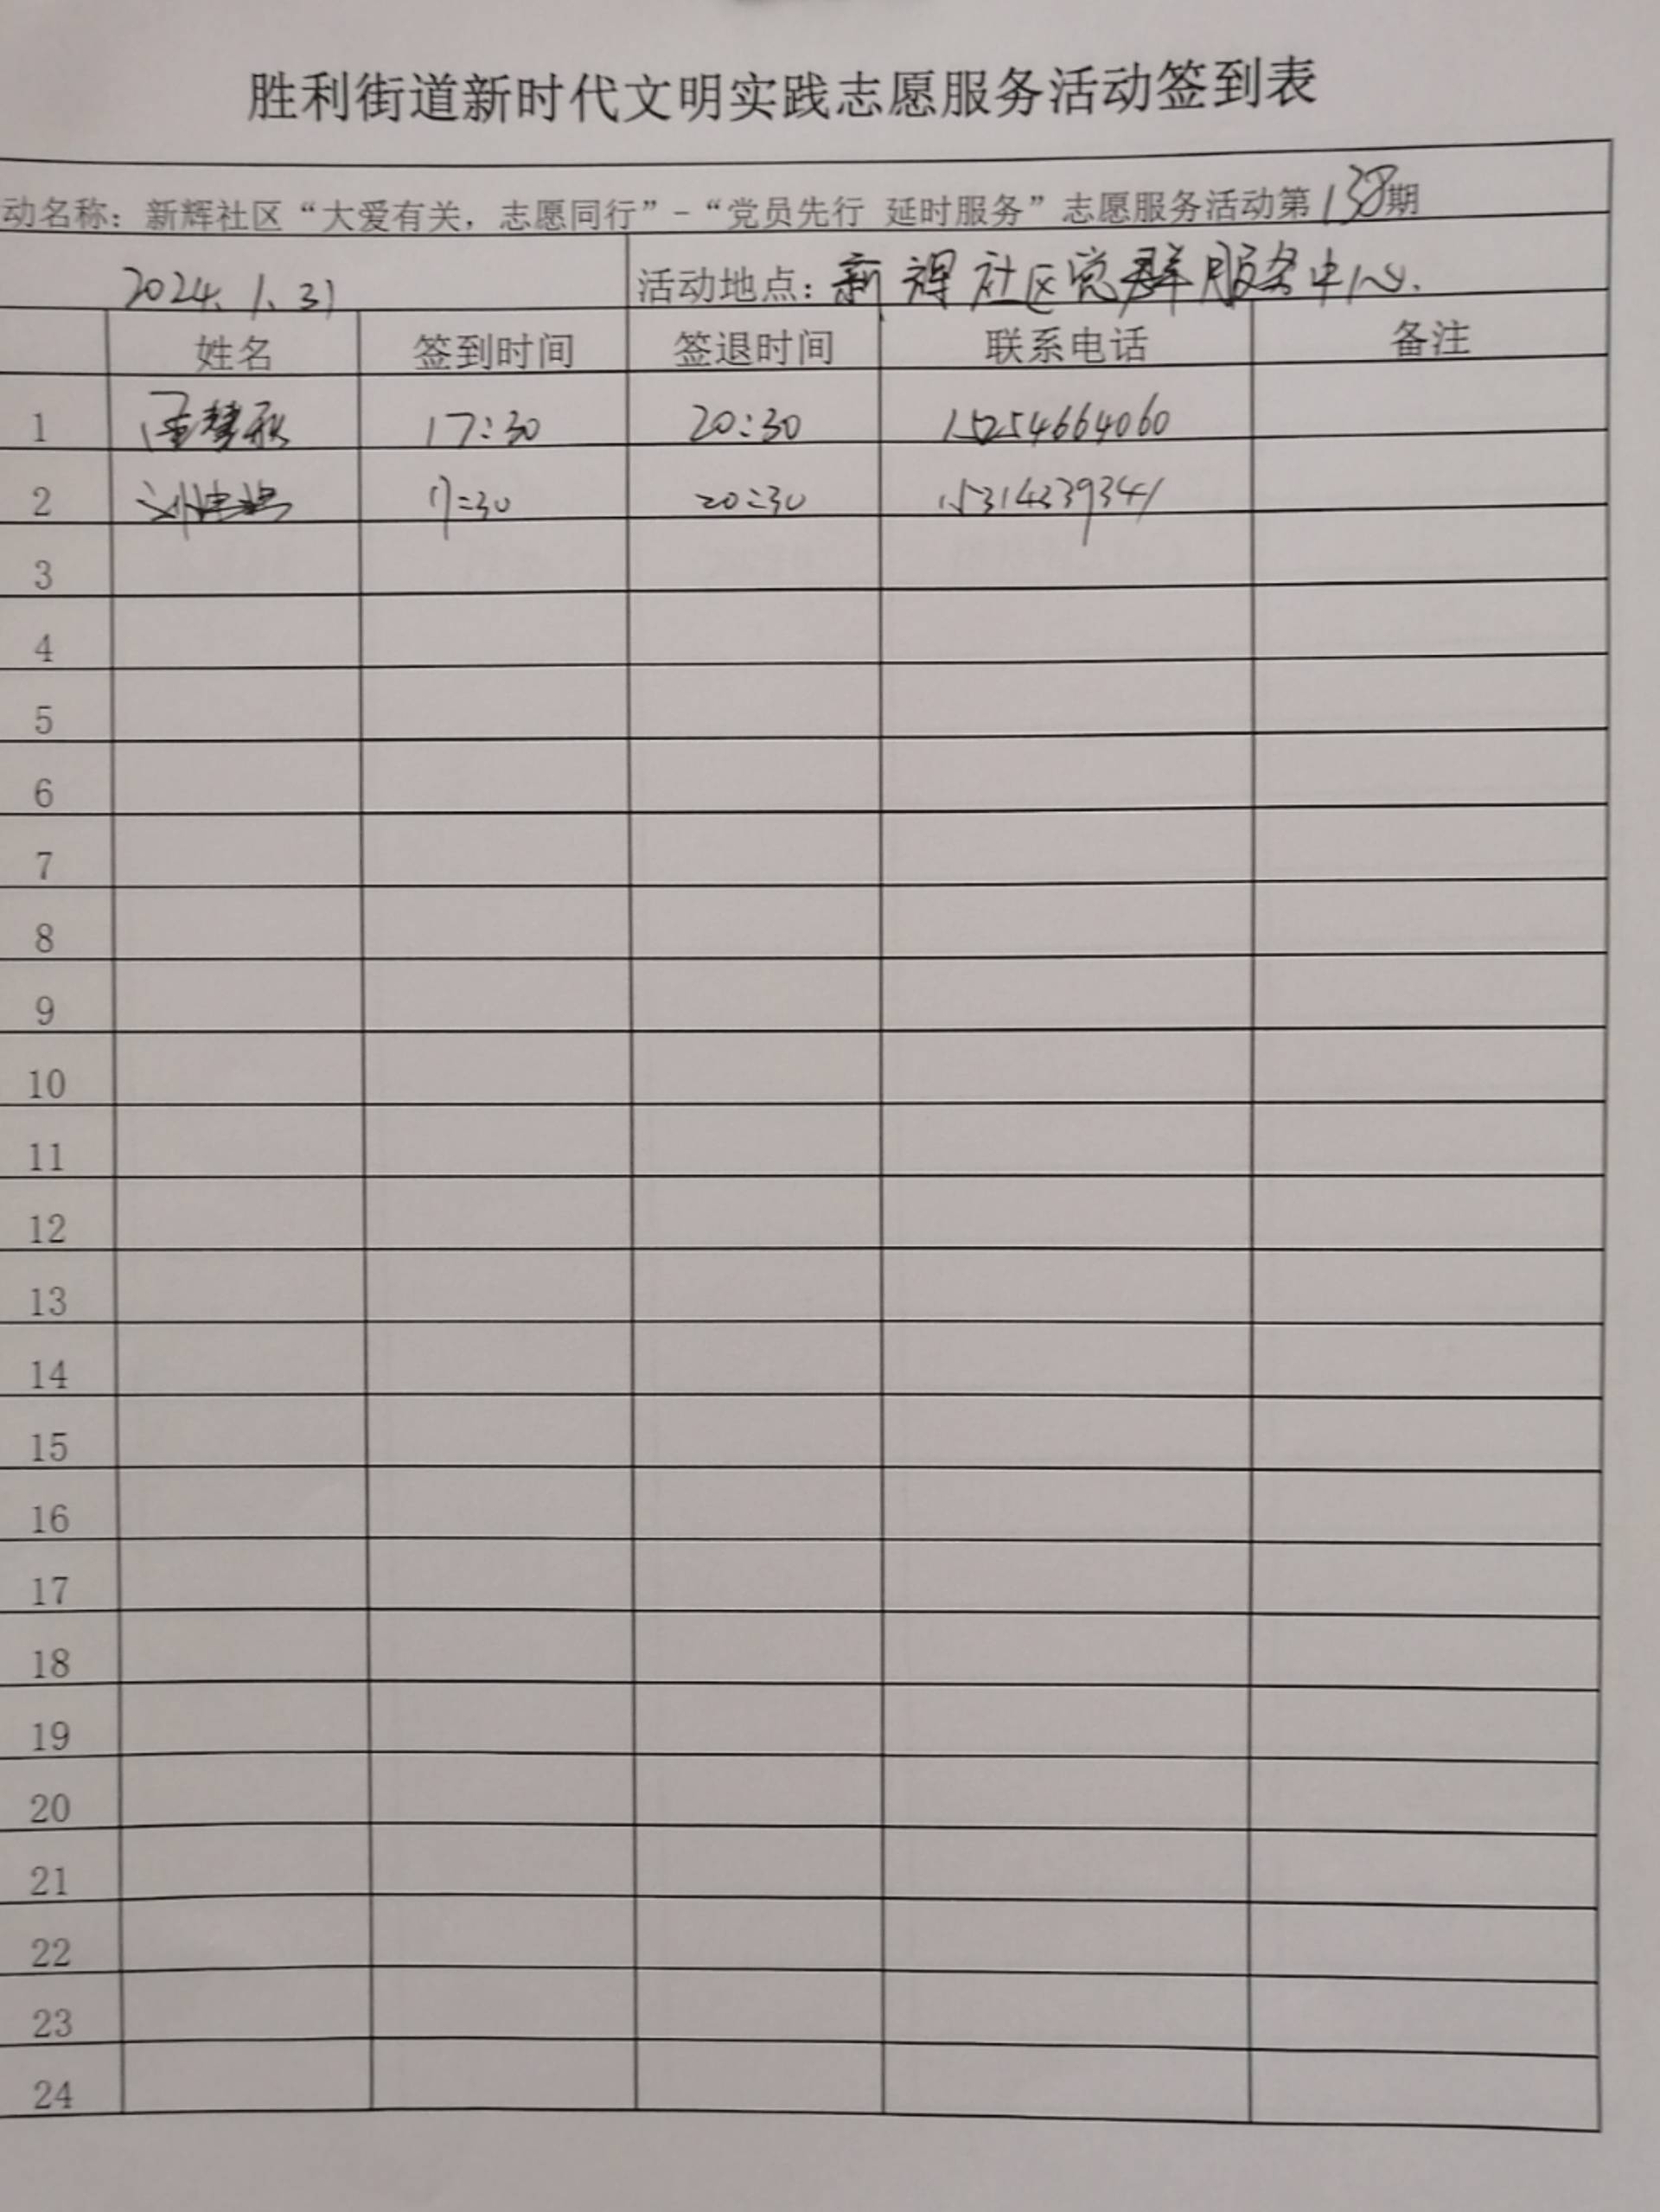 胜利街道新时代文明实践志愿服务活动签到表
动名称：新辉社区“大爱有关，志愿同行”-“党员先行 延时服务”志愿服务活动第138期
2024.1.31 活动地点：新辉社区党群服务中心.
姓名 签到时间 签退时间 联系电话 备注
1 17:30 20:30 15254664060
2 17:30 20:30 15314339341
3
4
5
6
7
8
9
10
11
12
13
14
15
16
17
18
19
20
21
22
23
24